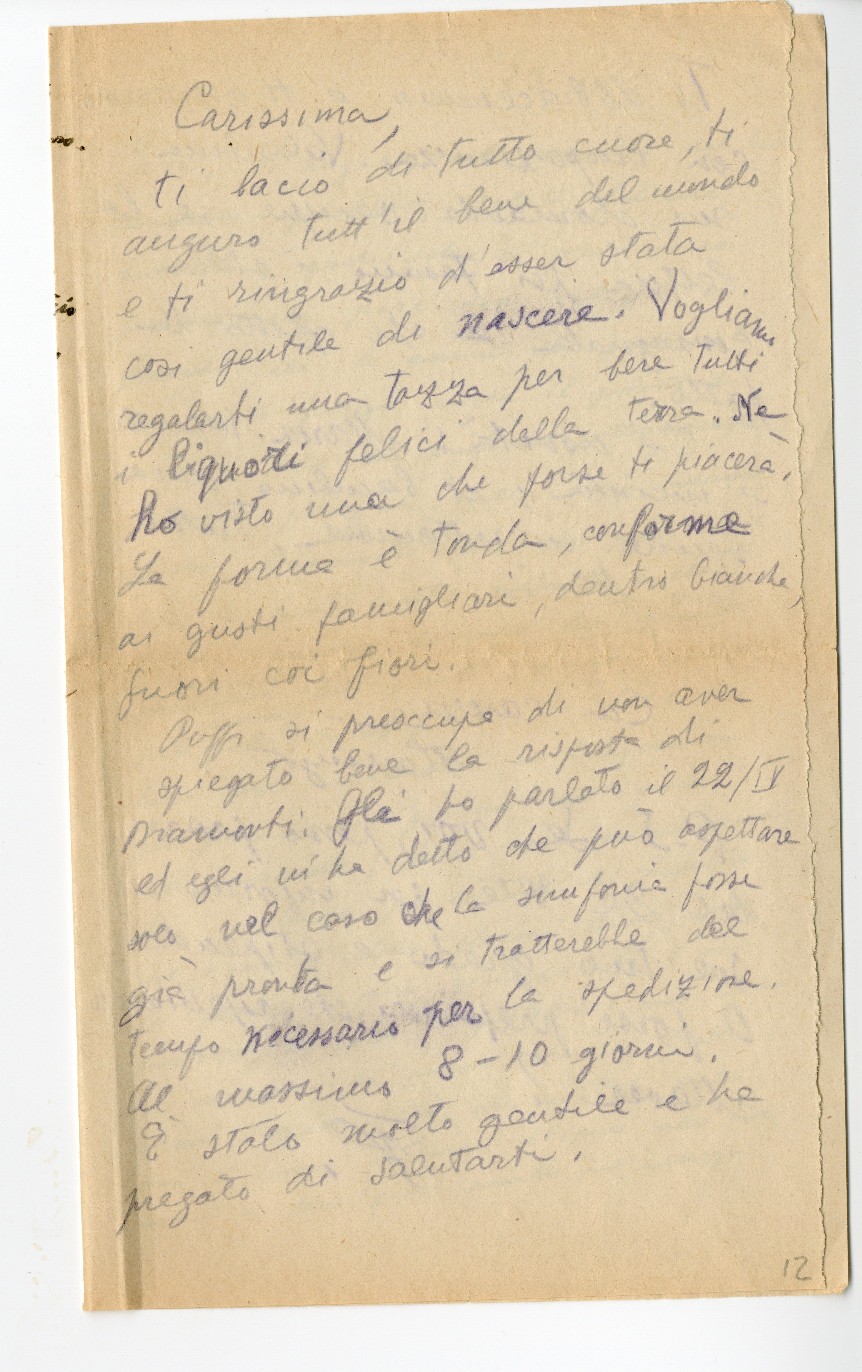 Carissima,
ti bacio di tutto cuore, ti
auguro tutt'il bene del mondo
e ti ringrazio d'esser stata
così gentile di nascere. Vogliamo
regalarti una tazza per bere tutti
i liquori felici della terra. Ne
ho visto una che forse ti piacerà.
La forma è tonda, conforme
ai gusti famigliari, dentro bianche,
fuori coi fiori.
Puffi si preoccupa di non aver
spiegato bene la risposta di
Gli ho parlato il 22/IV
ed egli mi ha detto che può aspettare
solo nel caso che la sinfonia fosse
già pronta e si tratterebbe del
tempo necessario per la spedizione.
Al massimo 8-10 giorni.
È stato molto gentile e ha
pregato di salutarti.
12